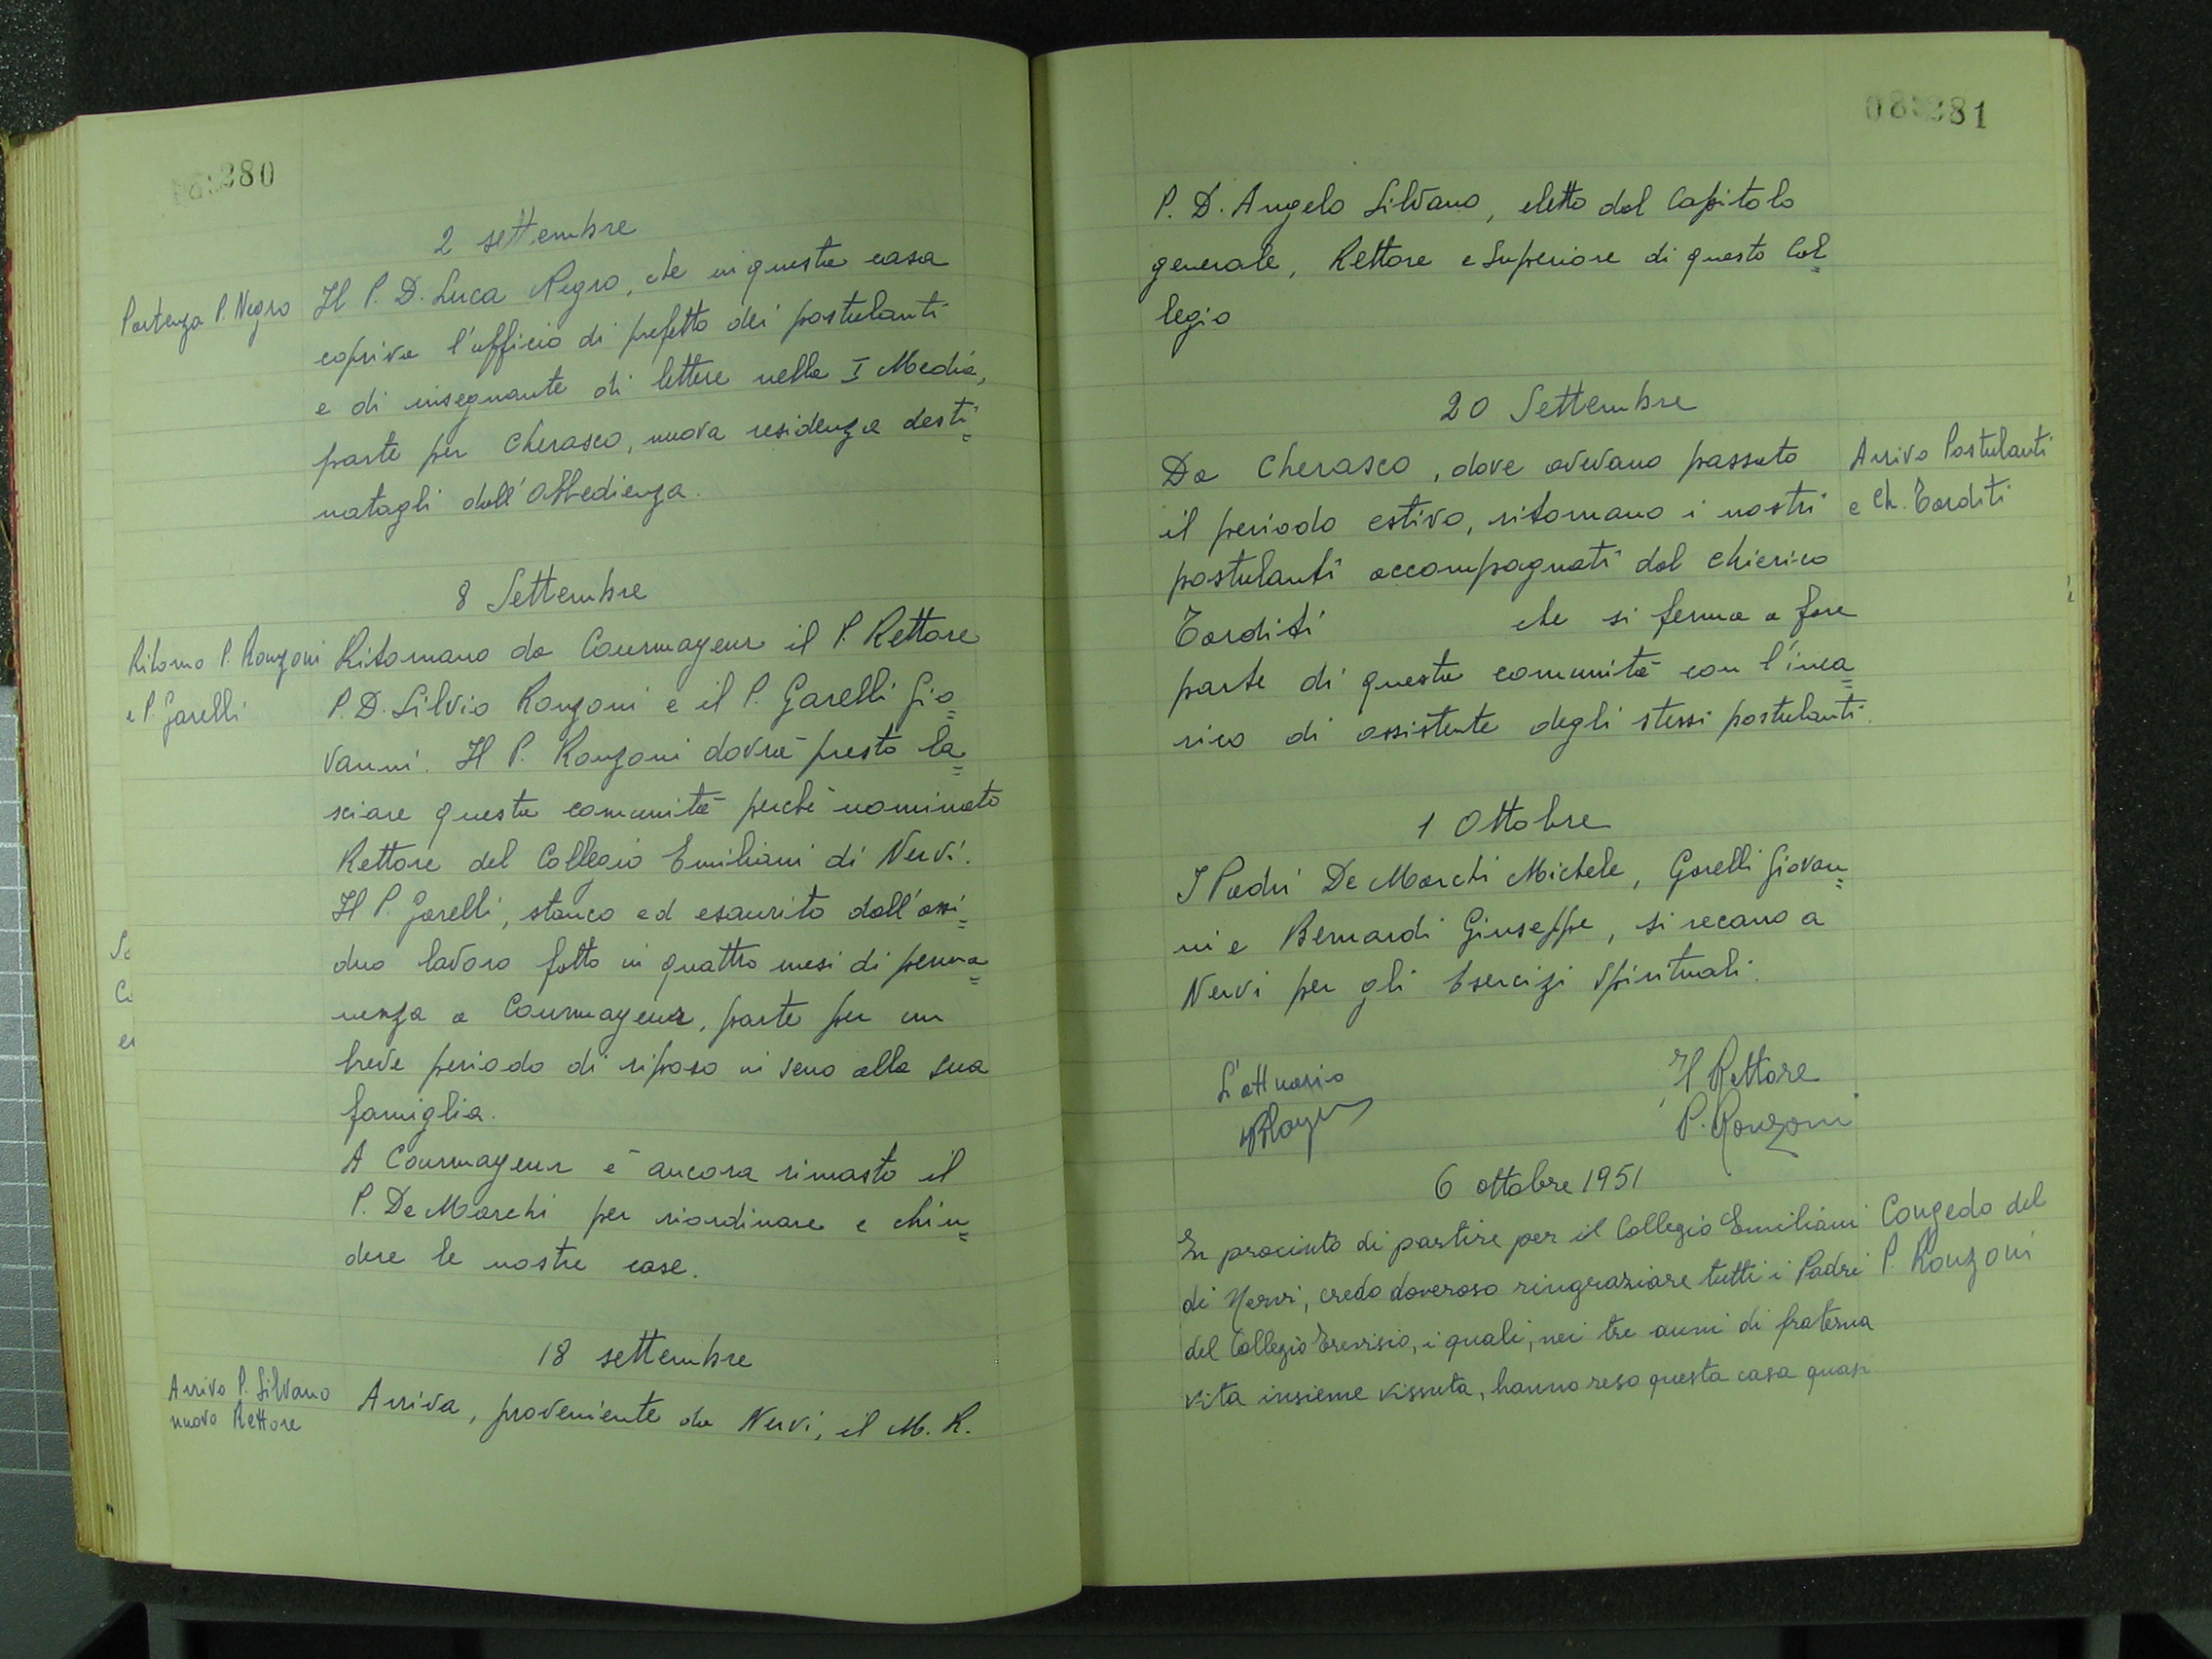 280
2 settembre
Partenza P. Negro
Il P. D. Luca Negro, che in questa casa
copriva l'ufficio di prefetto dei postulanti
e di insegnante di lettere nella I Media,
parte per Cherasco, nuova residenza desti=
natagli dall'Obbedienza.
8 Settembre
Ritorno P. Ronzoni
e P. Garelli
Ritornano da Courmayeur il P. Rettore
P. D. Silvio Ronzoni e il P. Garelli Gio=
vanni. Il P. Ronzoni dovrà presto la=
sciare questa comunità perché nominato
Rettore del Collegio Emiliani di Nervi.
Il P. Garelli, stanco ed esaurito dall'assi=
duo lavoro fatto in quattro mesi di perma=
nenza a Courmayeur, parte per un
breve periodo di riposo in seno alla sua
famiglia.
A Courmayeur è ancora rimasto il
P. De Marchi per riordinare e chiu=
dere le nostre case.
18 settembre
Arrivo P. Silvano
nuovo Rettore
Arriva, proveniente da Nervi, il M. R.
281
P. D. Angelo Silvano, eletto dal Capitolo
generale, Rettore e Superiore di questo Col=
legio
20 Settembre
Da Cherasco, dove avevano passato
il periodo estivo, ritornano i nostri
postulanti accompagnati dal chierico
Tarditi che si ferma a fare
parte di questa comunità con l'inca=
rico di assistente degli stessi postulanti.
Arrivo Postulanti
e Ch. Tarditi
1 Ottobre
I Padri De Marchi Michele, Garelli Giovan=
ni e Bernardi Giuseppe, si recano a
Nervi per gli Esercizi Spirituali.
L'attuario
Il Rettore
P. Ronzoni
6 ottobre 1951
In procinto di partire per il Collegio Emiliani
di Nervi, credo doveroso ringraziare tutti i Padri
del Collegio Trevisio, i quali, nei tre anni di fraterna
vita insieme vissuta, hanno reso questa casa quasi
Congedo del
P. Ronzoni